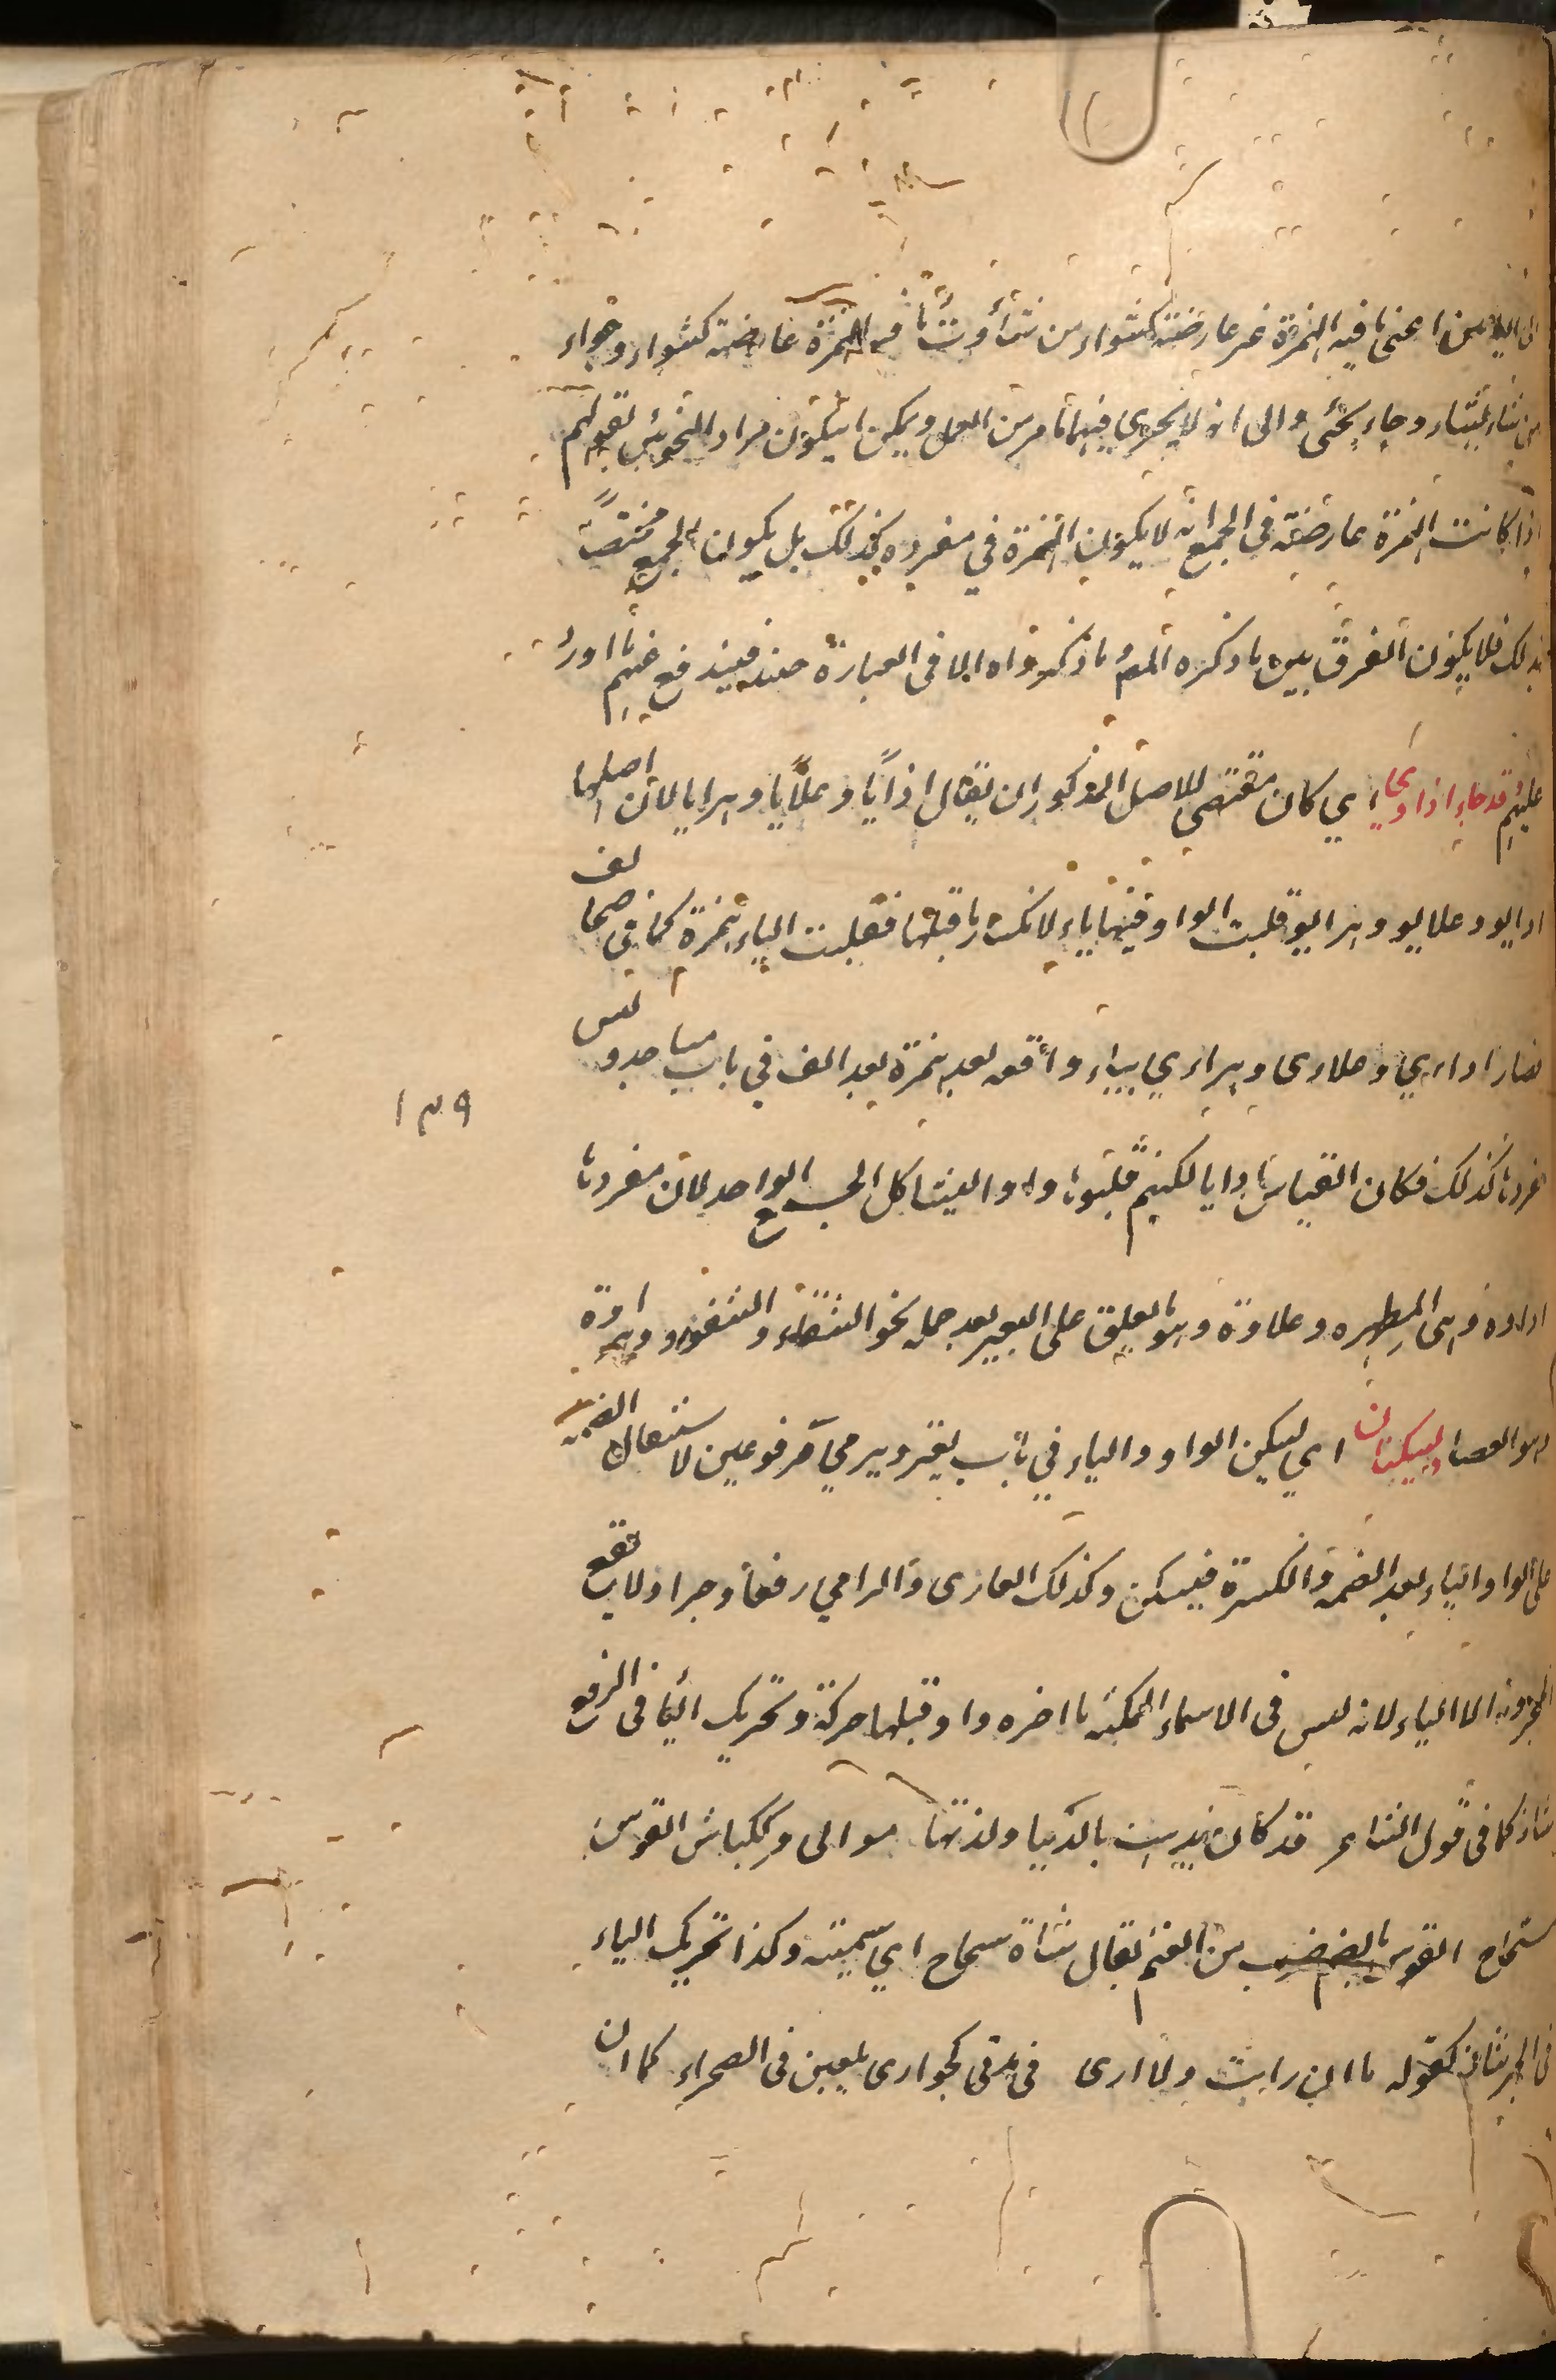 اعنى ما فيه الهمزة غير عارضة كشواء من شأوت وما فيه الهمزة عارضة كشواء وجواء
من شاء يشاء وجاء يجئى والى انه لا يجرى فيهما ما مر من العمل ويمكن ان يكون مراد النحويين بقولهم
اذا كانت الهمزة عارضة فى الجمع انه لا يكون الهمزة في مفرده كذلك بل يكون الجمع مختصًّا
بذلك فلا يكون الفرق بين ما ذكره المص وما ذكروه الا فى العبارة فيندفع عنهم ما اورد
عليهم قد جاء اداوى اي كان مقتضى الاصل المذكور ان يقال ادايا وعلايا وهرايا لان اصلها
ادايو وعلايو وهرايو قلبت الواو فيها ياء لانكسار ما قبلها فقلبت الياء همزة كما فى صحائف
فصار اداءي وعلاءى وهراءي بياء واقعه بعد همزة بعد الف في باب مساجد وليس
مفردها كذلك فكان القياس ادايا لكنهم قلبوها واوا ليشاكل الجمع الواحد لان مفردها
اداوة وهى المطهره وعلاوة وهو ما يعلق على البعير بعد حمله نحو السقاء والسفود وهراوة
وهو العصا ويسكنان اي يسكن الواو والياء في باب يغزو ويرمي مرفوعين لاستثقال الضمة
على الواو والياء بعد الضمه والكسرة فيسكن وكذلك الغازى والرامي رفعا وجرا ولا يقع
المجرور الا الياء لانه ليس فى الاسماء المتمكنه ما اخره واو قبلها حركة وتحريك الياء فى الرفع
شاذ كما فى قول الشاعر قد كان يذهب بالدنيا ولذتها موالى ككباش القوس
سحاح القوس من الغنم يقال شاة سحاح اي سمينه وكذا تحريك الياء
فى الجر شاذ كقوله ما ان رايت ولا ارى فى مدتى كجوارى يلعبن فى الصحراء كما ان
١٣٩